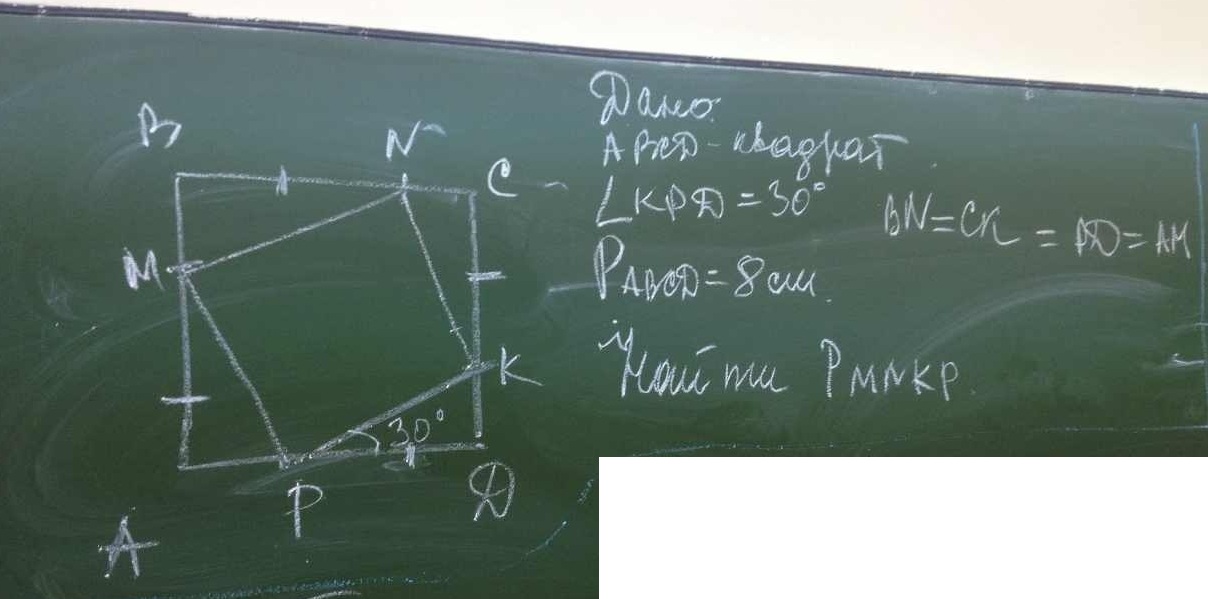 Дано:
ABCD - квадрат
∠KPD = 30°
BN = CK = PD = AM
P ABCD = 8 см.
Найти P MNKP.
B
N
C
M
K
30°
P
D
A